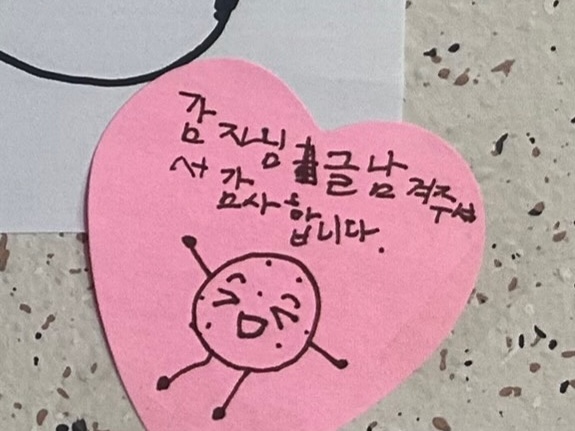 감자님 글 남겨주셔
서 감사합
니다.